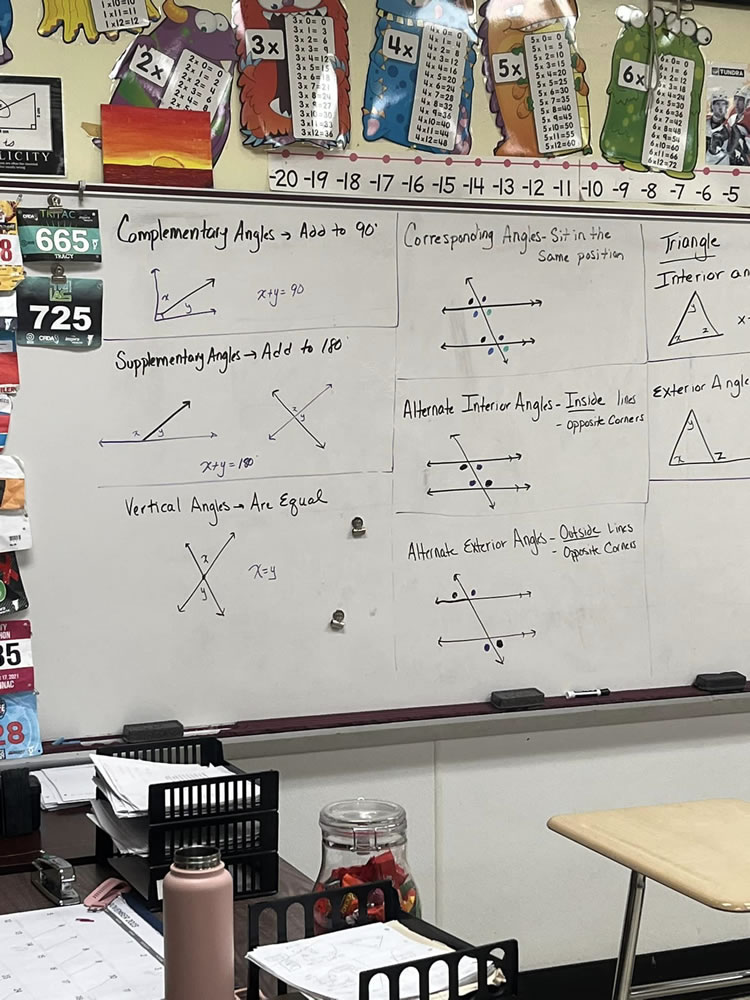 2x
2 x 0 = 0
2 x 1 = 2
2 x 2 = 4
3x
3 x 0 = 0
3 x 1 = 3
3 x 2 = 6
3 x 3 = 9
3 x 4 = 12
3 x 5 = 15
3 x 6 = 18
3 x 7 = 21
3 x 8 = 24
3 x 9 = 27
3 x 10 = 30
3 x 11 = 33
3 x 12 = 36
4x
4 x 0 = 0
4 x 1 = 4
4 x 2 = 8
4 x 3 = 12
4 x 4 = 16
4 x 5 = 20
4 x 6 = 24
4 x 7 = 28
4 x 8 = 32
4 x 9 = 36
4 x 10 = 40
4 x 11 = 44
4 x 12 = 48
5x
5 x 0 = 0
5 x 1 = 5
5 x 2 = 10
5 x 3 = 15
5 x 4 = 20
5 x 5 = 25
5 x 6 = 30
5 x 7 = 35
5 x 8 = 40
5 x 9 = 45
5 x 10 = 50
5 x 11 = 55
5 x 12 = 60
6x
6 x 0 = 0
6 x 1 = 6
6 x 2 = 12
6 x 3 = 18
6 x 4 = 24
6 x 5 = 30
6 x 6 = 36
6 x 7 = 42
6 x 8 = 48
6 x 9 = 54
6 x 10 = 60
6 x 11 = 66
6 x 12 = 72
TUNDRA
-20 -19 -18 -17 -16 -15 -14 -13 -12 -11 -10 -9 -8 -7 -6 -5
TRITAC
665
TRACY
725
Complementary Angles → Add to 90°
x
y
x+y=90
Supplementary Angles → Add to 180°
x y
x
y
x+y=180°
Vertical Angles → Are Equal
x
y
x=y
Corresponding Angles - Sit in the
Same position
Alternate Interior Angles - Inside lines
- opposite Corners
Alternate Exterior Angles - Outside Lines
- Opposite Corners
Triangle
Interior an
y
x z
x
Exterior Angle
y
x z